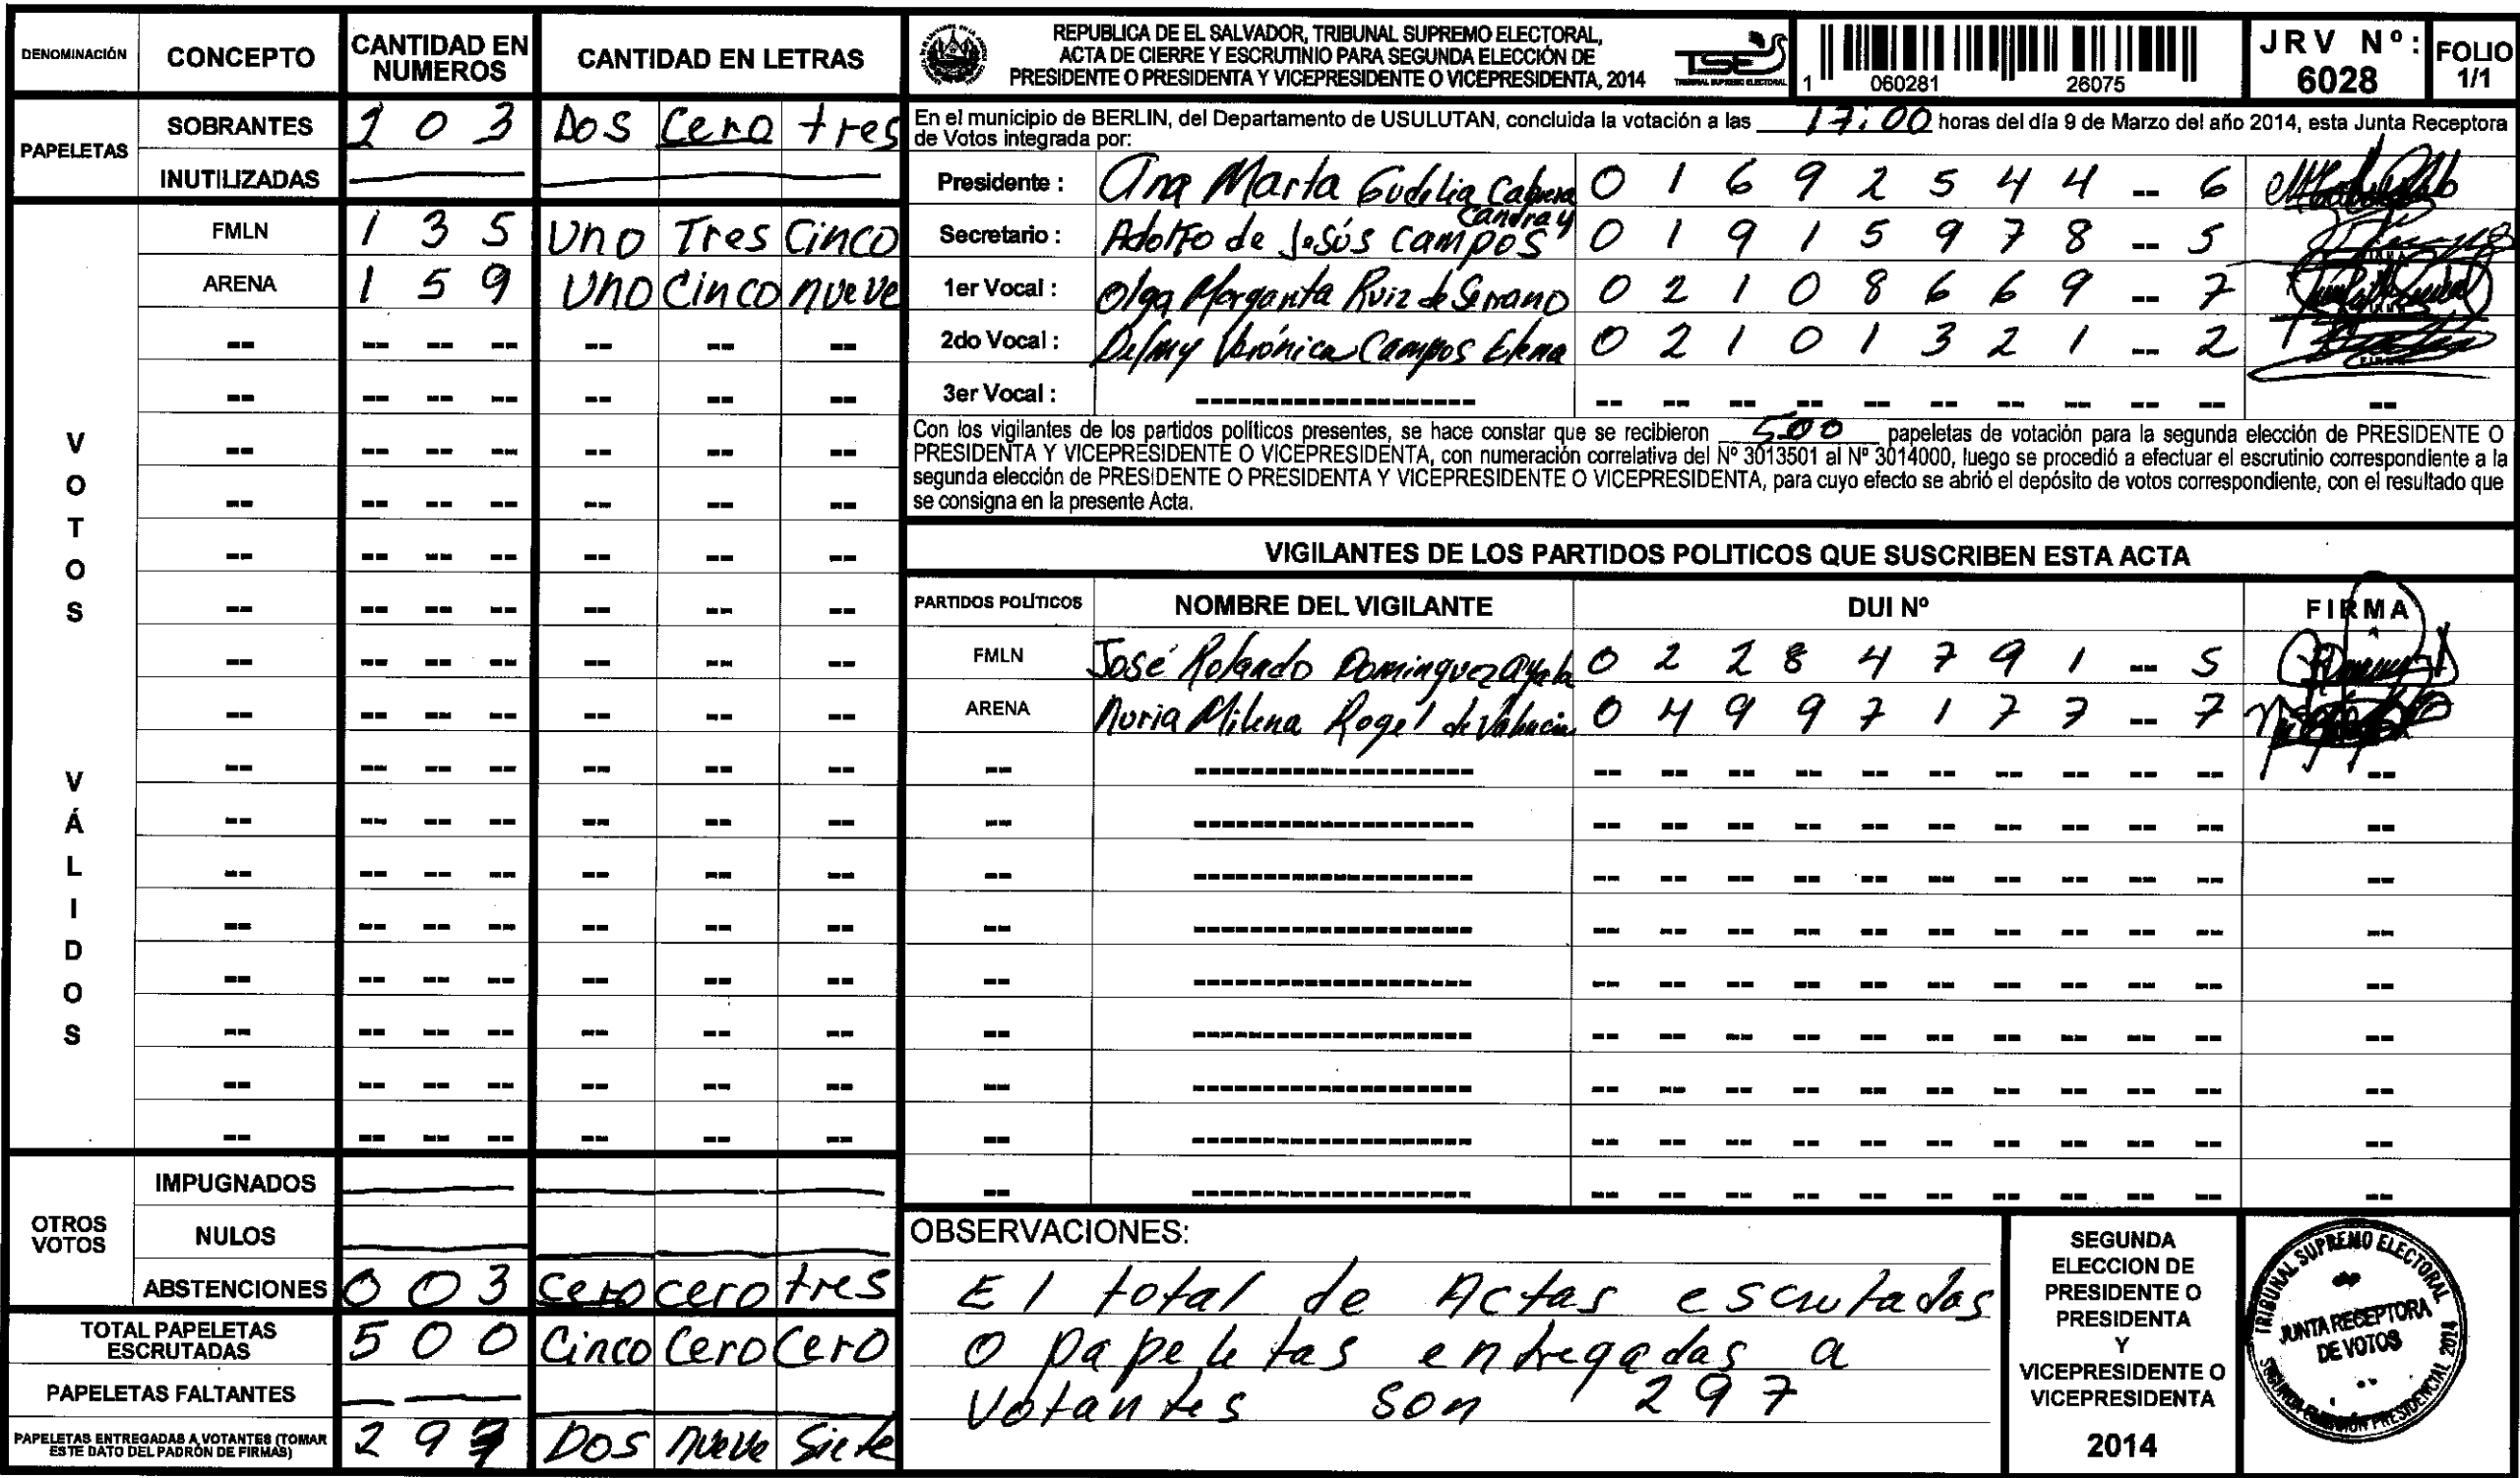 DENOMINACIÓN CONCEPTO CANTIDAD EN NUMEROS CANTIDAD EN LETRAS
PAPELETAS
SOBRANTES 203 Dos Cero tres
INUTILIZADAS
VOTOS VÁLIDOS
FMLN 1 3 5 Uno Tres Cinco
ARENA 1 5 9 Uno Cinco nueve
OTROS VOTOS
IMPUGNADOS
NULOS
ABSTENCIONES 0 0 3 Cero cero tres
TOTAL PAPELETAS ESCRUTADAS 5 0 0 Cinco Cero Cero
PAPELETAS FALTANTES
PAPELETAS ENTREGADAS A VOTANTES (TOMAR ESTE DATO DEL PADRÓN DE FIRMAS) 2 9 7 Dos nueve Siete
REPUBLICA DE EL SALVADOR, TRIBUNAL SUPREMO ELECTORAL,
ACTA DE CIERRE Y ESCRUTINIO PARA SEGUNDA ELECCIÓN DE
PRESIDENTE O PRESIDENTA Y VICEPRESIDENTE O VICEPRESIDENTA, 2014
TSE
TRIBUNAL SUPREMO ELECTORAL
1 060281 26075
JRV Nº: 6028
FOLIO 1/1
En el municipio de BERLIN, del Departamento de USULUTAN, concluida la votación a las 17:00 horas del día 9 de Marzo del año 2014, esta Junta Receptora
de Votos integrada por:
Presidente : Ana Marta Gudelia Cabrera Candray 0 1 6 9 2 5 4 4 -- 6
Secretario : Adolfo de Jesús Campos 0 1 9 1 5 9 7 8 -- 5
1er Vocal : Olga Margarita Ruiz de Serrano 0 2 1 0 8 6 6 9 -- 7
2do Vocal : Delmy Verónica Campos 0 2 1 0 1 3 2 1 -- 2
3er Vocal :
Con los vigilantes de los partidos políticos presentes, se hace constar que se recibieron 500 papeletas de votación para la segunda elección de PRESIDENTE O
PRESIDENTA Y VICEPRESIDENTE O VICEPRESIDENTA, con numeración correlativa del Nº 3013501 al Nº 3014000, luego se procedió a efectuar el escrutinio correspondiente a la
segunda elección de PRESIDENTE O PRESIDENTA Y VICEPRESIDENTE O VICEPRESIDENTA, para cuyo efecto se abrió el depósito de votos correspondiente, con el resultado que
se consigna en la presente Acta.
VIGILANTES DE LOS PARTIDOS POLITICOS QUE SUSCRIBEN ESTA ACTA
PARTIDOS POLÍTICOS NOMBRE DEL VIGILANTE DUI Nº FIRMA
FMLN José Rolando Dominguez Ayala 0 2 2 8 4 7 9 1 -- 5
ARENA Nuria Milena Rogel de 0 4 9 9 7 1 7 7 -- 7
OBSERVACIONES:
El total de Actas escrutadas
o papeletas entregadas a
Votantes son 297
SEGUNDA
ELECCION DE
PRESIDENTE O
PRESIDENTA
Y
VICEPRESIDENTE O
VICEPRESIDENTA
2014
TRIBUNAL SUPREMO ELECTORAL
JUNTA RECEPTORA
DE VOTOS
SEGUNDA ELECCIÓN PRESIDENCIAL 2014